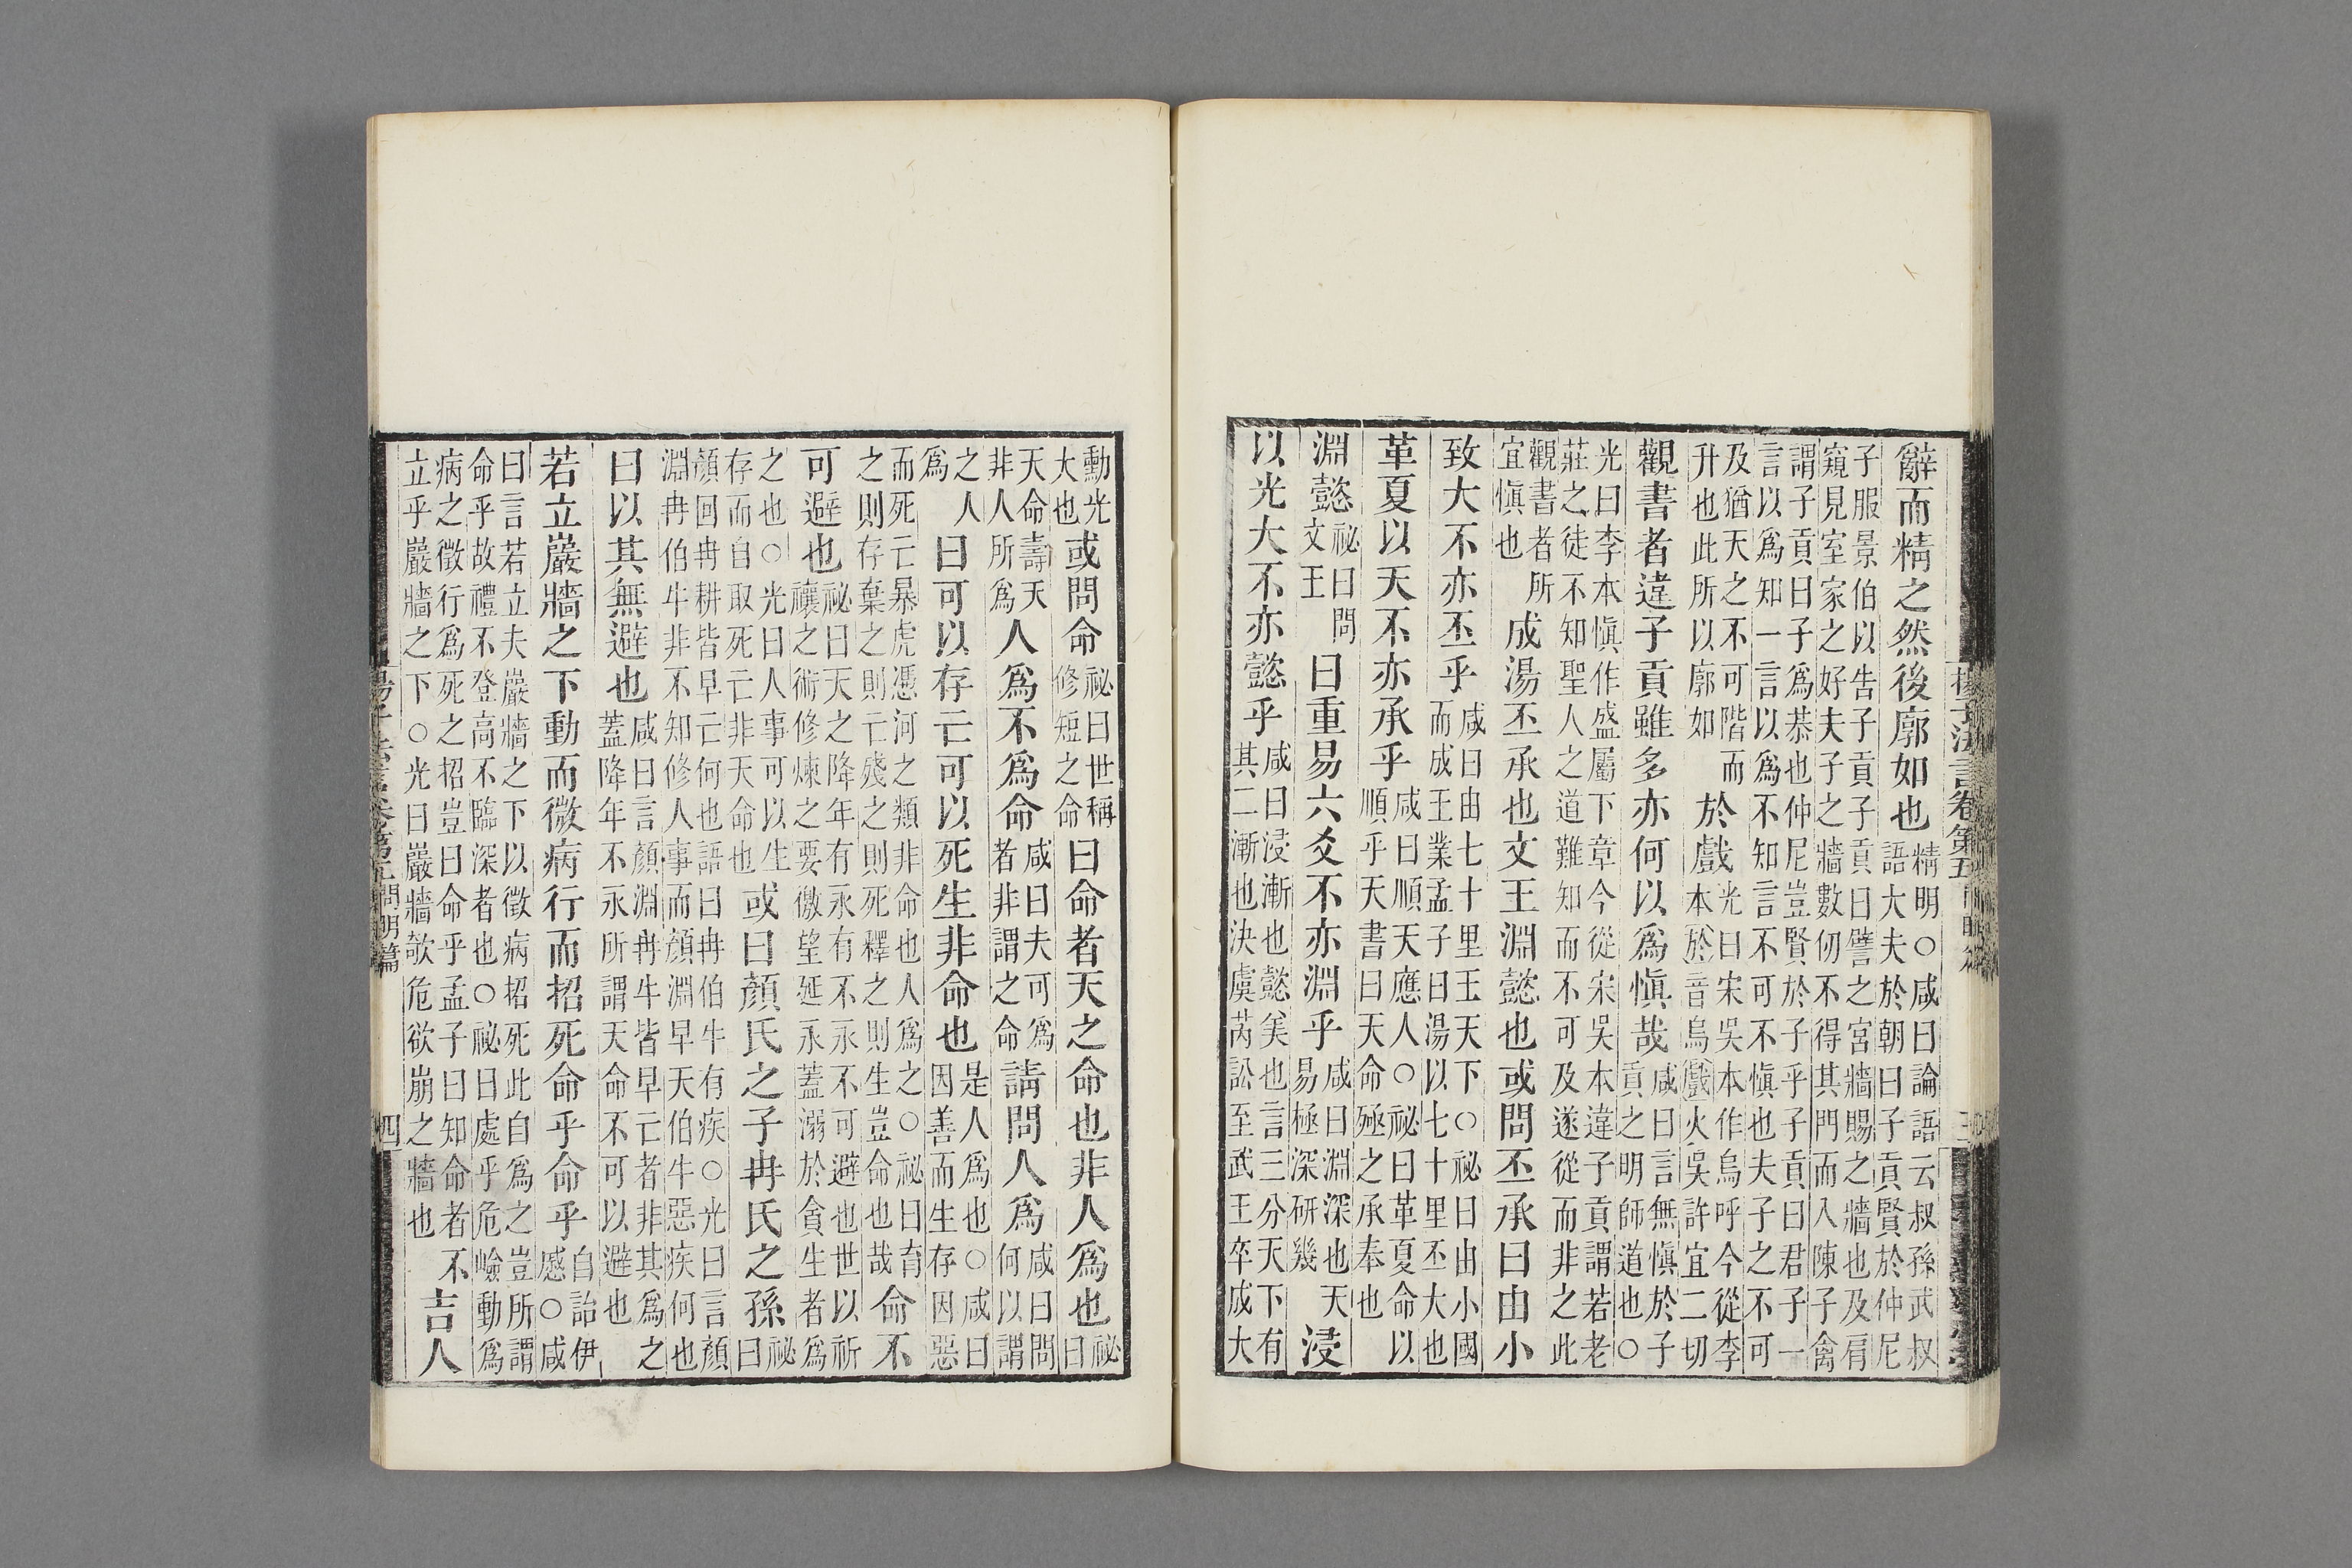 辭而精之然後廓如也精明○咸曰論語云叔孫武叔語大夫於朝曰子貢賢於仲尼
子服景伯以告子貢子貢曰譬之宮牆賜之牆也及肩窺見室家之好夫子之牆數仞不得其門而入陳子禽
謂子貢曰子爲恭也仲尼豈賢於子乎子貢曰君子一言以爲知一言以爲不知言不可不愼也夫子之不可
及猶天之不可階而升也此所以廓如於戲光曰宋吳本作烏呼今從李本於音烏戲火吳許宜二切
觀書者違子貢雖多亦何以爲愼哉咸曰言無愼於子貢之明師道也○
光曰李本愼作盛屬下章今從宋吳本違子貢謂若老莊之徒不知聖人之道難知而不可及遂從而非之此
觀書者所宜愼也成湯丕承也文王淵懿也或問丕承曰由小
致大不亦丕乎咸曰由七十里王天下○祕曰由小國而成王業孟子曰湯以七十里丕大也
革夏以天不亦承乎咸曰順天應人○祕曰革夏命以順乎天書曰天命殛之承奉也
淵懿祕曰問文王曰重易六爻不亦淵乎咸曰淵深也天易極深研幾浸
以光大不亦懿乎咸曰浸漸也懿美也言三分天下有其二漸也決虞芮訟至武王卒成大
揚子法言卷第五 問明篇 三
勳光大也或問命祕曰世稱修短之命曰命者天之命也非人爲也祕曰
天命壽夭非人所爲人爲不爲命咸曰夫可爲者非謂之命請問人爲咸曰問何以謂
之人爲曰可以存亡可以死生非命也是人爲也○咸曰因善而生存因惡
而死亡暴虎憑河之類非命也人爲之○祕曰育之則存棄之則亡殘之則死釋之則生豈命也哉命不
可避也祕曰天之降年有永有不永不可避也世以祈禳之術修煉之要徼望延永蓋溺於貪生者爲
之也○光曰人事可以生存而自取死亡非天命也或曰顏氏之子冉氏之孫祕曰
顏回冉耕皆早亡何也語曰冉伯牛有疾○光曰言顏淵冉伯牛非不知修人事而顏淵早夭伯牛惡疾何也
曰以其無避也咸曰言顏淵冉牛皆早亡者非其爲之蓋降年不永所謂天命不可以避也
若立巖牆之下動而徵病行而招死命乎命乎自詒伊慼○咸
曰言若立夫巖牆之下以徵病招死此自爲之豈所謂命乎故禮不登高不臨深者也○祕曰處乎危嶮動爲
病之徵行爲死之招豈曰命乎孟子曰知命者不立乎巖牆之下○光曰巖牆欹危欲崩之牆也吉人
揚子法言卷第五 問明篇 四